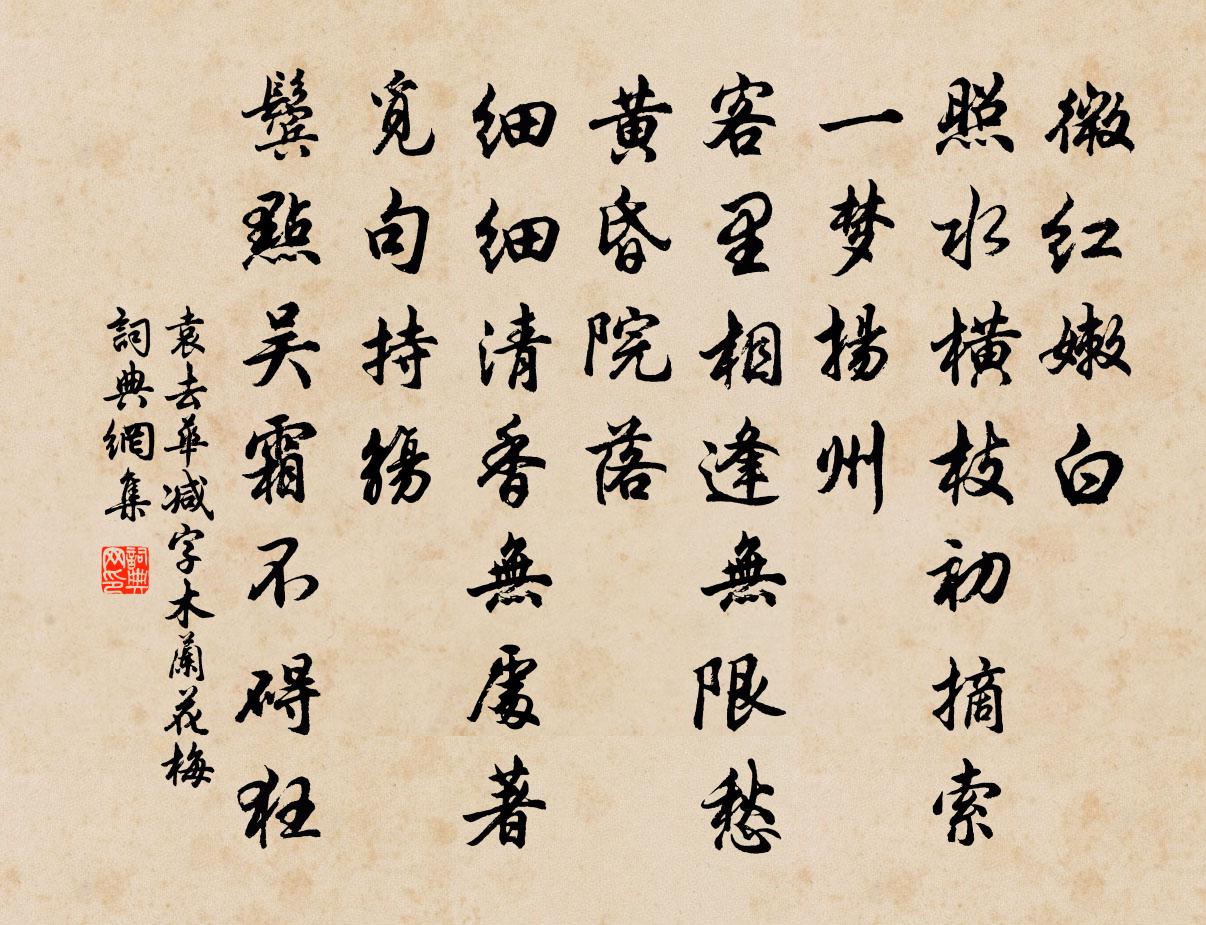 微红嫩白
照水横枝初摘索
一梦揚州
客里相逢無限愁
黄昏院落
细细清香無處著
覓句持觴
鬓點吴霜不碍狂
袁去華减字木蘭花梅
詞典網集
詞典网印